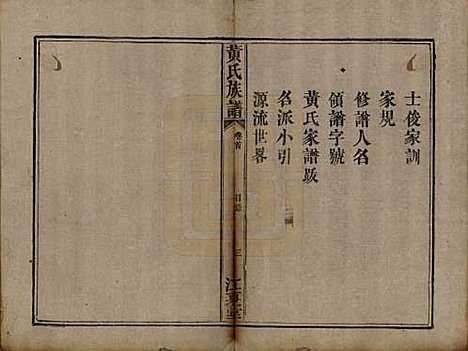 士俊家訓
家規
修譜人名
領譜字號
黃氏家譜跋
名派小引
源流世畧
黃氏族譜
卷首
目錄
三
江夏堂